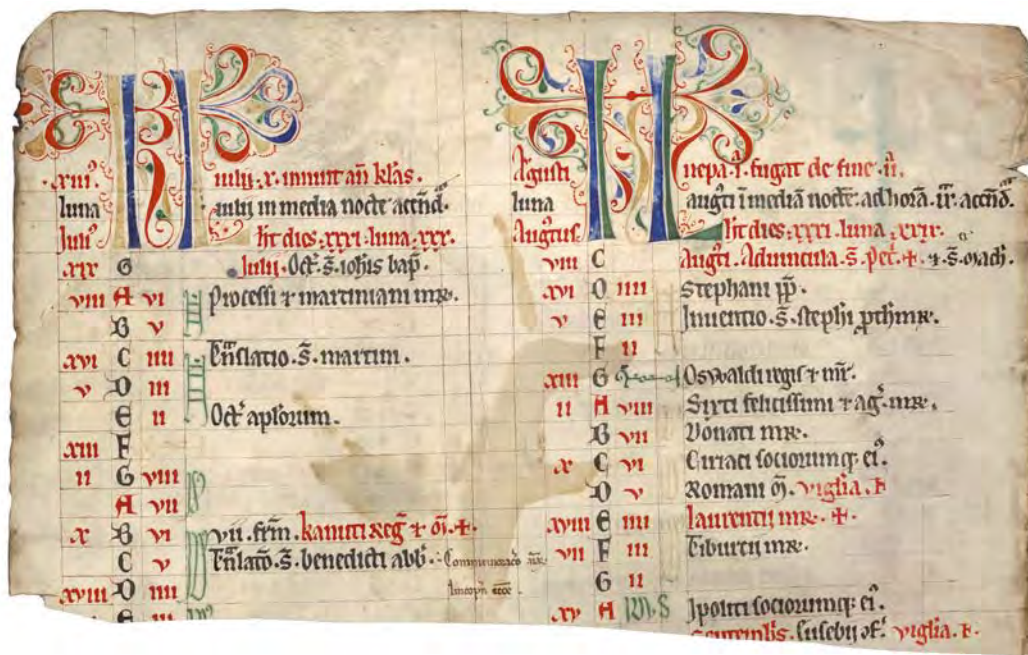 KL
·xiii· iulii ·x· innuit an̄ kl̄as.
luna iulii in media nocte accend̄.
Iuli hn̄t dies ·xxxi· luna ·xxx·
xix G Iulii. Oct̄. s̄. ioh̄is bap̄.
viii A vi N Processi ⁊ martiniani
B v
xvi C iiii N Tn̄slatio. s̄. martini.
v D iii
E ii Oct̄ apl̄orum.
xiii F
ii G viii
A vii
x B vi vii. fr̄m. kanuti reḡ ⁊ m̄. +.
C v Tn̄slatō. s̄. benedicti abb̄.
xviii D iiii
E iii
KL
Agusti nepa. i. fugat de fine. ii.
luna augti ī mediā nocte: ad horā. iii. accn̄d.
Augtus hn̄t dies ·xxxi· luna ·xxix·
viii C Augti. Aduincula. s̄. pet̄. +. ⁊. s̄. mach̄.
xvi D iiii Stephani p̄p̄.
v E iii Inuentio. s̄. steph̄i
F ii
xiii G Oswaldi regis ⁊ mr̄.
ii A viii Sixti felicissimi ⁊ aḡ.
B vii Donati
x C vi Ciriaci sociorumq; ei.
D v Romani m̄. vigl̄ia.
xviii E iiii laurentii +.
vii F iii Tiburtii
G ii
xv A IDUS Ipoliti sociorumq; ei.
Septembris. Eusebij vigl̄ia.